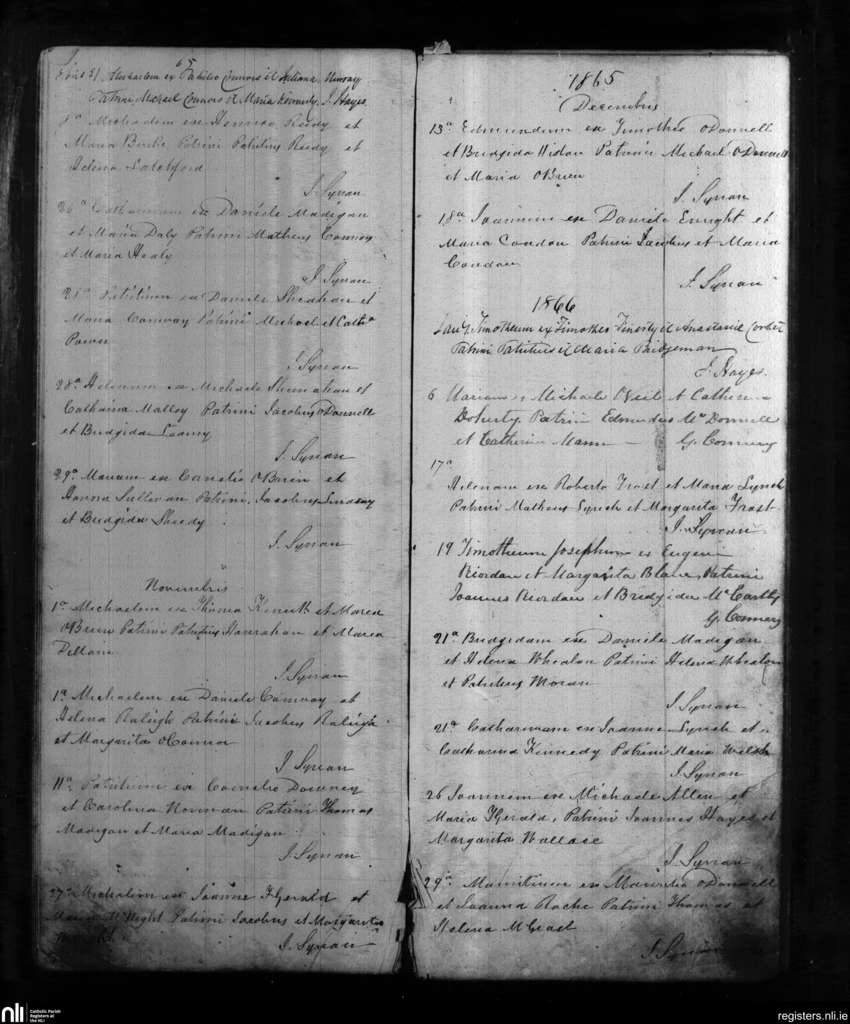 65
Michaelem ex Patritio Connors et Juliana
Patrini Michael Connors et Maria Kennedy, J. Hayes
8a Michaelem ex Henrico Reidy et
Maria Burke Patrini Patritius Reidy et
Helena
J. Synan
26a Catharinam ex Daniele Madigan
et Maria Daly Patrini Matheus Conway
et Maria Healy
J. Synan
Patritium ex Daniele Sheahan et
Maria Conway Patrini Michael et Cath
Power
J. Synan
28a Helenam ex Michaele et
Catharina Malloy Patrini Jacobus O Donnell
et Bridgida
J. Synan
29a Mariam ex Cornelio O Brien et
Hanna Sullivan Patrini Jacobus Lindsay
et Bridgida Sheedy
J. Synan
Novembris
1a Michaelem ex Thoma et Maria
O Brien Patrini Patritius Hanrahan et Maria
J. Synan
1a Michaelem ex Daniele Conway et
Helena Raleigh Patrini Jacobus Raleigh
et Margarita O Connor
J. Synan
11a Patritium ex Cornelio Downey
et Carolina Noonan Patrini Thomas
Madigan et Maria Madigan
J. Synan
27a Michaelem ex Joanne FGerald et
Maria Patrini Jacobus et Margarita
J. Synan
1865
Decembris
13a Edmundum ex Timotheo O Donnell
et Bridgida Patrini Michael O Donnell
et Maria O Brien
J. Synan
18a Joannem ex Daniele Enright et
Maria Condon Patrini Jacobus et Maria
Condon
J. Synan
1866
Timotheum ex Timotheo et Anastasia Corbet
Patrini Patritius et Maria Bridgeman
J. Hayes
6 Mariam ex Michaele et Catherina
Doherty Patrini Mc Donnell
et Catherina Mann
G. Conway
17a
Helenam ex Roberto Frost et Maria Lynch
Patrini Matheus Lynch et Margarita Frost
J. Synan
19 Timotheum Josephum ex Eugenio
Riordan et Margarita Patrini
Joannes Riordan et Bridgida Mc Carthy
G. Conway
21a Bridgidam ex Daniele Madigan
et Helena Whealan Patrini Helena Whealan
et Patritius Moran
J. Synan
21a Catharinam ex Joanne Lynch et
Catharina Kennedy Patrini Maria Welsh
J. Synan
26 Joannem ex Michaele Allen et
Maria FGerald, Patrini Joannes Hayes et
Margarita Wallace
J. Synan
29a ex O Donnell
et Joanna Roche Patrini Thomas et
Helena
J. Synan
nli
Catholic Parish
Registers at
the NLI
registers.nli.ie